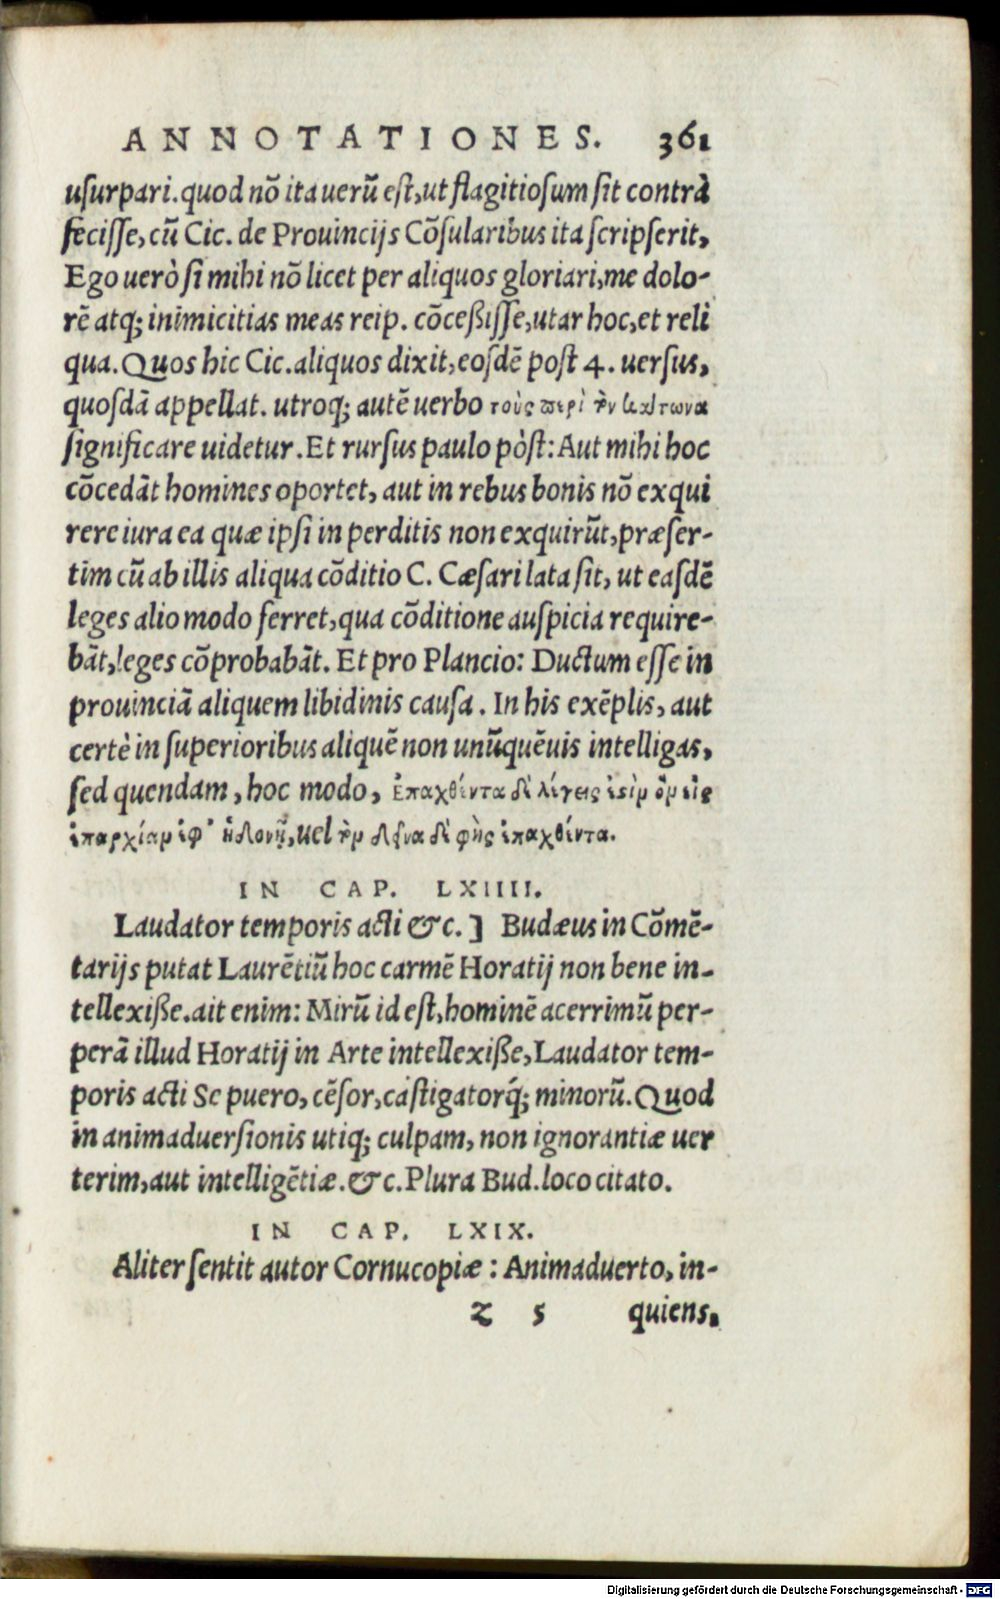 ANNOTATIONES. 361
usurpari. quod nõ ita uerũ est, ut flagitiosum sit contrà
fecisse, cũ Cic. de Prouincijs Cõsularibus ita scripserit,
Ego uerò si mihi nõ licet per aliquos gloriari, me dolo-
rẽ atq; inimicitias meas reip. cõceßisse, utar hoc, et reli
qua. Quos hic Cic. aliquos dixit, eosdẽ post 4. uersus,
quosdã appellat. utroq; autẽ uerbo τοὺς περὶ τὸν
significare uidetur. Et rursus paulo pòst: Aut mihi hoc
cõcedãt homines oportet, aut in rebus bonis nõ exqui
rere iura ea quæ ipsi in perditis non exquirũt, præser-
tim cũ ab illis aliqua cõditio C. Cæsari lata sit, ut easdẽ
leges alio modo ferret, qua cõditione auspicia require-
bãt, leges cõprobabãt. Et pro Plancio: Ductum esse in
prouinciã aliquem libidinis causa. In his exẽplis, aut
certè in superioribus aliquẽ non unũquẽuis intelligas,
sed quendam, hoc modo, ἐπαχθέντα δὲ λέγεις
ἐπαρχίαν ἐφ' ἡδονῇ, uel δὲ φῂς ἐπαχθέντα.
IN CAP. LXIIII.
Laudator temporis acti &c.] Budæus in Cõmẽ-
tarijs putat Laurẽtiũ hoc carmẽ Horatij non bene in-
tellexiße. ait enim: Mirũ id est, hominẽ acerrimũ per-
perã illud Horatij in Arte intellexiße, Laudator tem-
poris acti Se puero, cẽsor, castigatorq́; minorũ. Quod
in animaduersionis utiq; culpam, non ignorantiæ uer
terim, aut intelligẽtiæ. &c. Plura Bud. loco citato.
IN CAP. LXIX.
Aliter sentit autor Cornucopiæ: Animaduerto, in-
z 5 quiens.
Digitalisierung gefördert durch die Deutsche Forschungsgemeinschaft - DFG